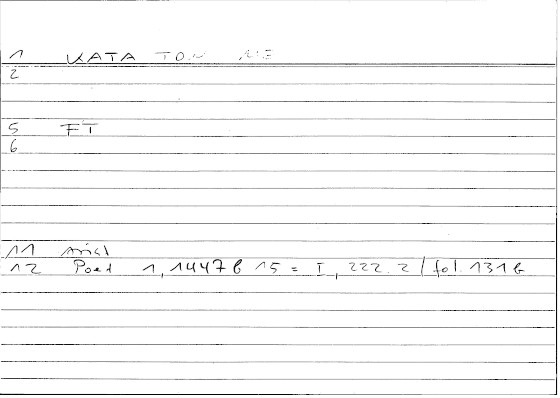 1 KATA TON ME
2
5 FT
6
11 Arist
12 Poet 1, 1447b 15 = I, 222. 2 / fol. 131b